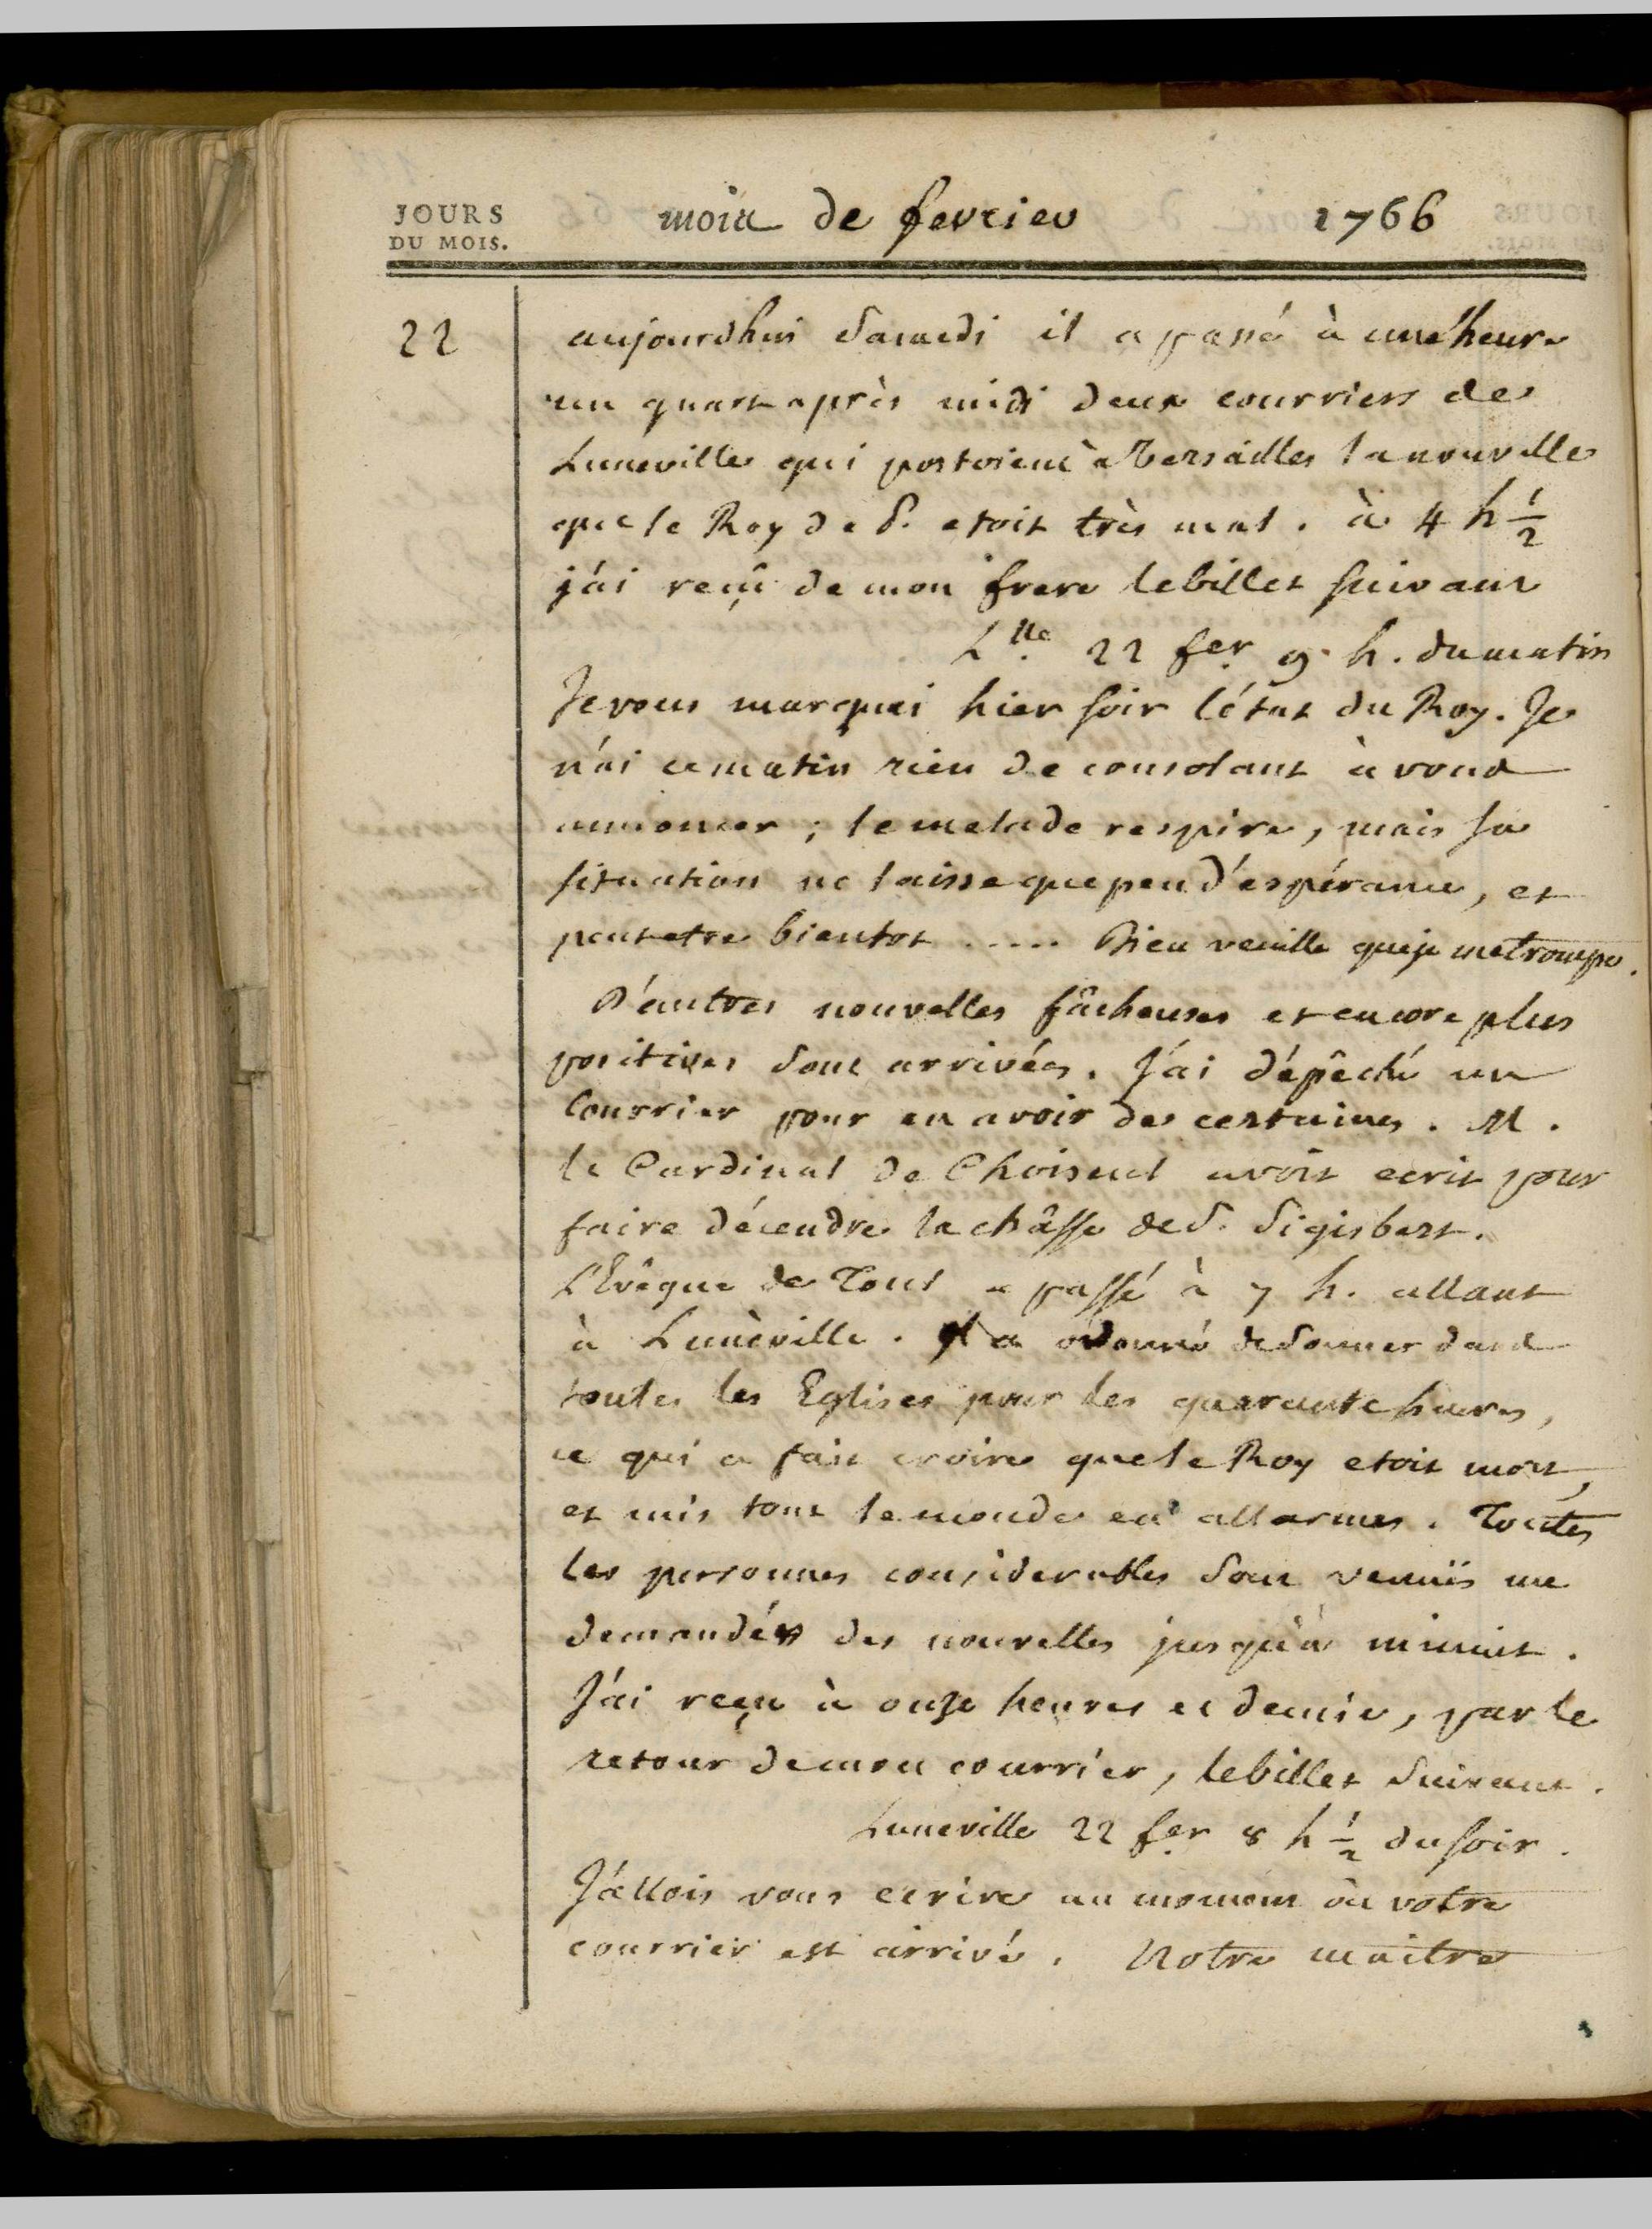 JOURS
DU MOIS.
mois de fevrier 1766
22
aujourdhui Samedi il a passé à une heure
un quart après midi deux courriers de
Luneville qui portoient à Versailles la nouvelle
que le Roy de P. etoit très mal. à 4 h ½
j'ai reçû de mon frere le billet suivant
Llle 22 fer 9 h. du matin
Je vous marquai hier soir l'état du Roy. Je
n'ai ce matin rien de consolant à vous
annoncer ; le malade respire, mais sa
situation ne laisse que peu d'espérance, et
peutetre bientot ..... Dieu veuille que je me trompe.
D'autres nouvelles fâcheuses et encore plus
positives sont arrivées. J'ai dépêché un
Courrier pour en avoir des certaines. M.
le Cardinal de Choiseul avoit ecrit pour
faire décendre la châsse de S. Sigisbert.
L'Evêque de Toul a passé à 7 h. allant
à Lunèville. Il a ordonné de sonner dans
toutes les Eglises pour les quarante heures,
ce qui a fait croire que le Roy etoit mort,
et mis tout le monde en allarmes. Toutes
les personnes considerables sont venuës me
demander des nouvelles jusqu'à minuit.
J'ai reçu à onze heures et demie, par le
retour de mon courrier, le billet suivant.
Luneville 22 fer 8 h ½ du soir.
J'allois vous ecrire au moment où votre
courrier est arrivé. Notre maitre